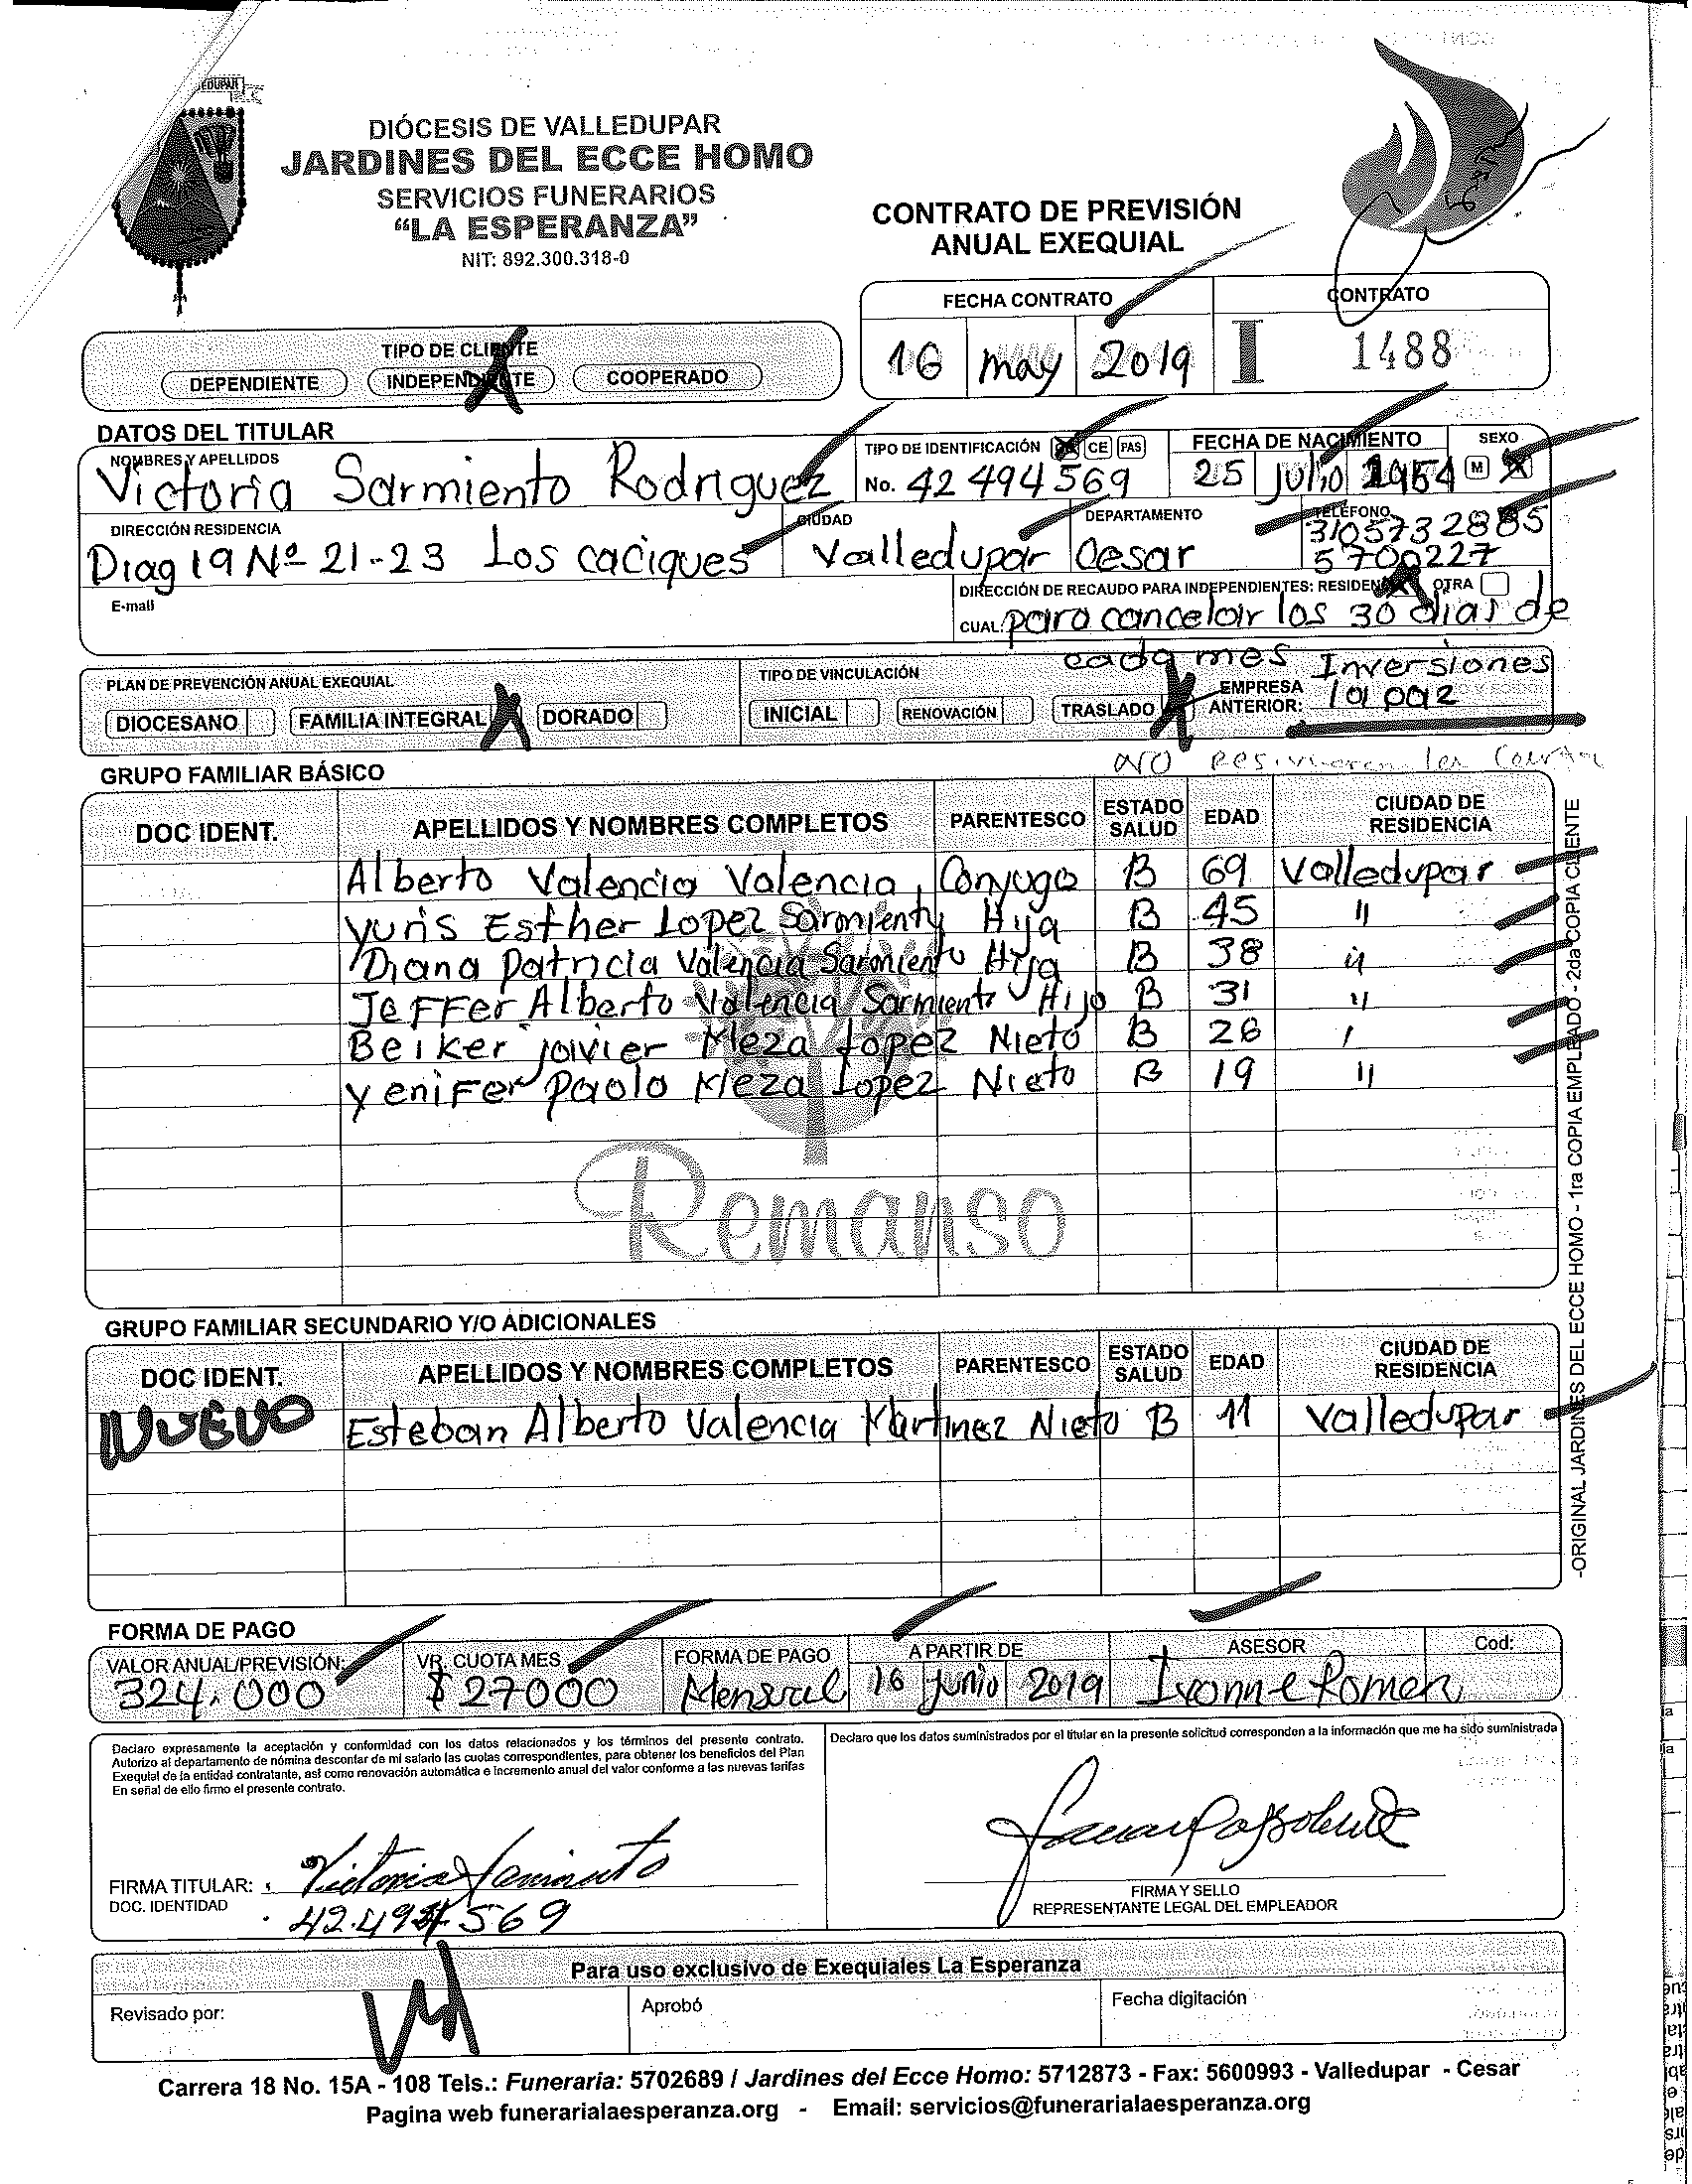 EDUPAR
DIÓCESIS DE VALLEDUPAR
JARDINES DEL ECCE HOMO
SERVICIOS FUNERARIOS
“LA ESPERANZA”
NIT: 892.300.318-0
CONTRATO DE PREVISIÓN
ANUAL EXEQUIAL
FECHA CONTRATO CONTRATO
16 may 2019 I 1488
TIPO DE CLIENTE
DEPENDIENTE INDEPENDIENTE COOPERADO
DATOS DEL TITULAR
NOMBRES Y APELLIDOS TIPO DE IDENTIFICACIÓN CE PAS FECHA DE NACIMIENTO SEXO
Victoria Sarmiento Rodriguez No. 42494569 25 Julio 1954 M
DIRECCIÓN RESIDENCIA CIUDAD DEPARTAMENTO TELÉFONO
Diag 19 Nº 21-23 Los caciques Valledupar Cesar 3105732885
5700227
E-mail DIRECCIÓN DE RECAUDO PARA INDEPENDIENTES: RESIDEN OTRA
CUAL: para cancelar los 30 dias de
cada mes
PLAN DE PREVENCIÓN ANUAL EXEQUIAL TIPO DE VINCULACIÓN
DIOCESANO FAMILIA INTEGRAL DORADO INICIAL RENOVACIÓN TRASLADO EMPRESA ANTERIOR: Inversiones
la paz
NO
GRUPO FAMILIAR BÁSICO
DOC IDENT. APELLIDOS Y NOMBRES COMPLETOS PARENTESCO ESTADO SALUD EDAD CIUDAD DE RESIDENCIA
Alberto Valencia Valencia Conyugo B 69 Valledupar
Yuris Esther Lopez Sarmiento Hija B 45 "
Diana Patricia Valencia Sarmiento Hija B 38 "
Jeffer Alberto Valencia Sarmiento Hijo B 31 "
Beiker javier Meza Lopez Nieto B 26 /
Yenifer Paola Meza Lopez Nieto B 19 "
Remanso
GRUPO FAMILIAR SECUNDARIO Y/O ADICIONALES
DOC IDENT. APELLIDOS Y NOMBRES COMPLETOS PARENTESCO ESTADO SALUD EDAD CIUDAD DE RESIDENCIA
NUEVO Esteban Alberto Valencia Martinez Nieto B 11 Valledupar
-ORIGINAL JARDINES DEL ECCE HOMO - 1ra COPIA EMPLEADO - 2da COPIA CLIENTE
FORMA DE PAGO
VALOR ANUAL/PREVISIÓN: VR. CUOTA MES FORMA DE PAGO A PARTIR DE ASESOR Cod:
324.000 $27000 Mensual 16 junio 2019 Ivonne Romero
Declaro expresamente la aceptación y conformidad con los datos relacionados y los términos del presente contrato.
Autorizo al departamento de nómina descontar de mi salario las cuotas correspondientes, para obtener los beneficios del Plan
Exequial de la entidad contratante, así como renovación automática e incremento anual del valor conforme a las nuevas tarifas
En señal de ello firmo el presente contrato.
Declaro que los datos suministrados por el titular en la presente solicitud corresponden a la información que me ha sido suministrada
FIRMA TITULAR: Victoria Sarmiento
DOC. IDENTIDAD 42.494569
FIRMA Y SELLO
REPRESENTANTE LEGAL DEL EMPLEADOR
Para uso exclusivo de Exequiales La Esperanza
Revisado por: Aprobó Fecha digitación
Carrera 18 No. 15A - 108 Tels.: Funeraria: 5702689 / Jardines del Ecce Homo: 5712873 - Fax: 5600993 - Valledupar - Cesar
Pagina web funerarialaesperanza.org - Email: servicios@funerarialaesperanza.org